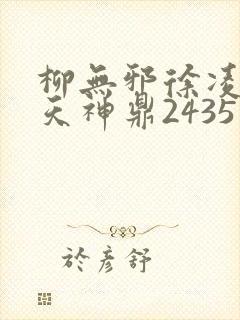 柳無邪徐凌
天神鼎2435
於彦舒